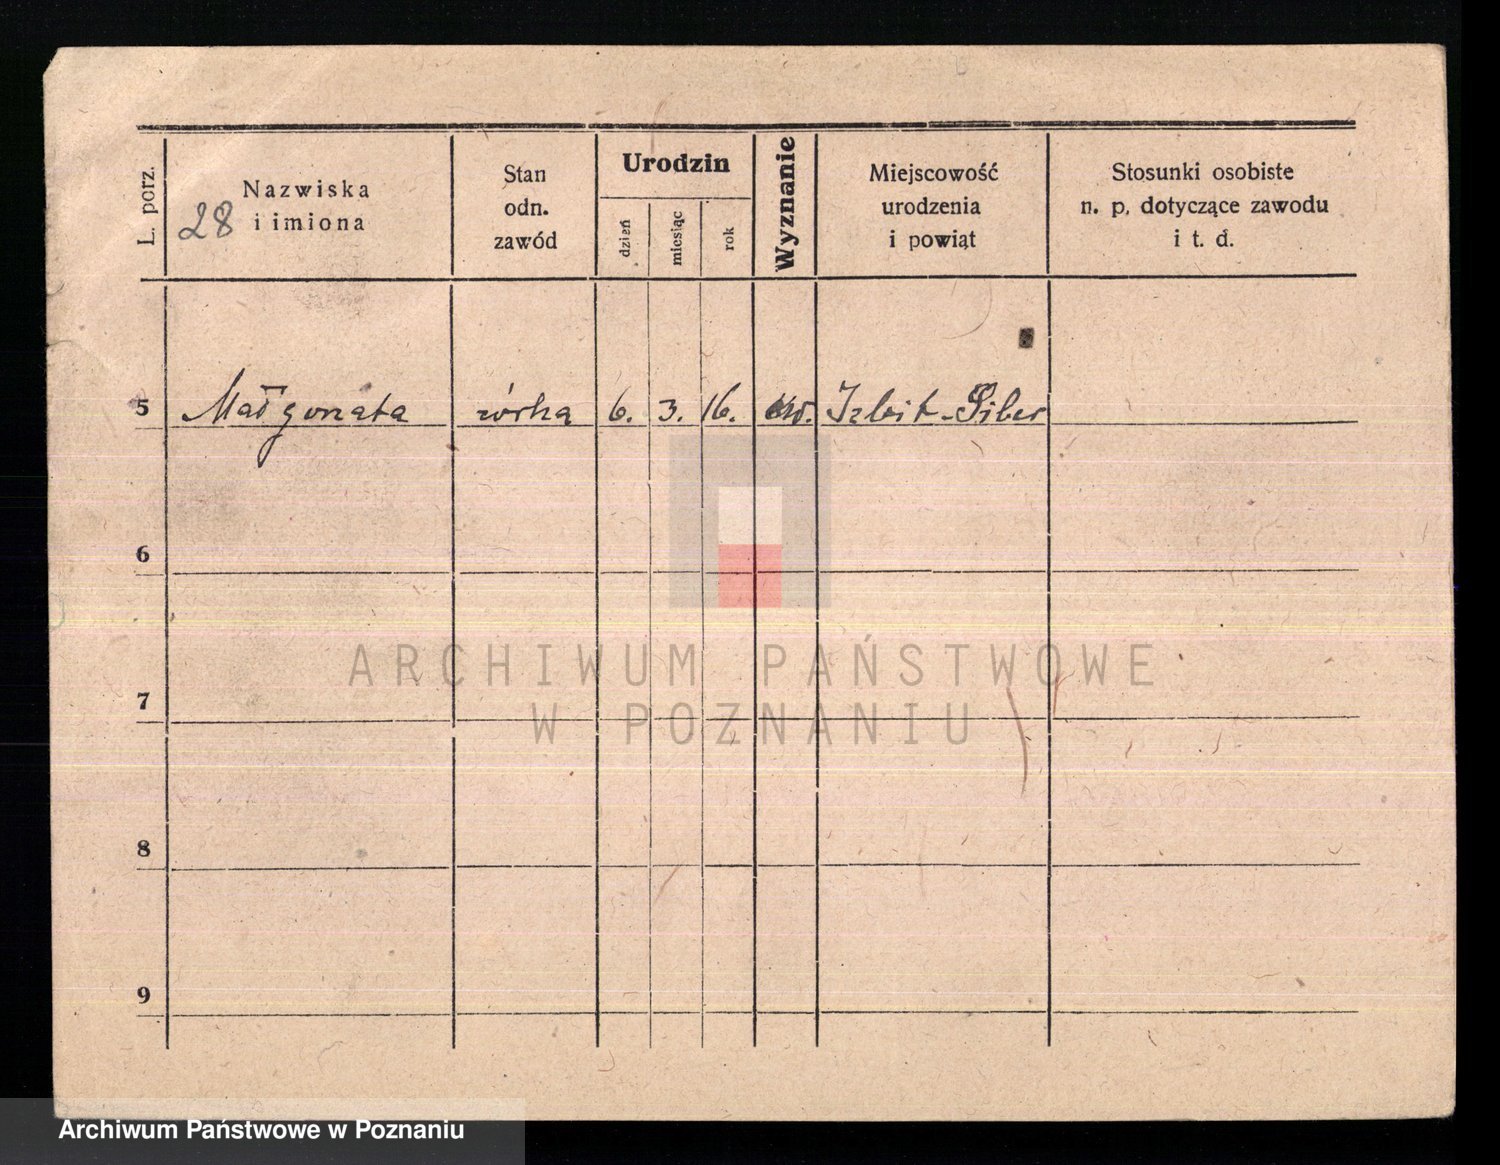 L. porz.
Nazwiska
i imiona
28
Stan
odn.
zawód
Urodzin
dzień
miesiąc
rok
Wyznanie
Miejscowość
urodzenia
i powiąt
Stosunki osobiste
n. p. dotyczące zawodu
i t. d.
5 Małgorzata córka 6. 3. 16.
6
7
8
9
ARCHIWUM PAŃSTWOWE
W POZNANIU
Archiwum Państwowe w Poznaniu